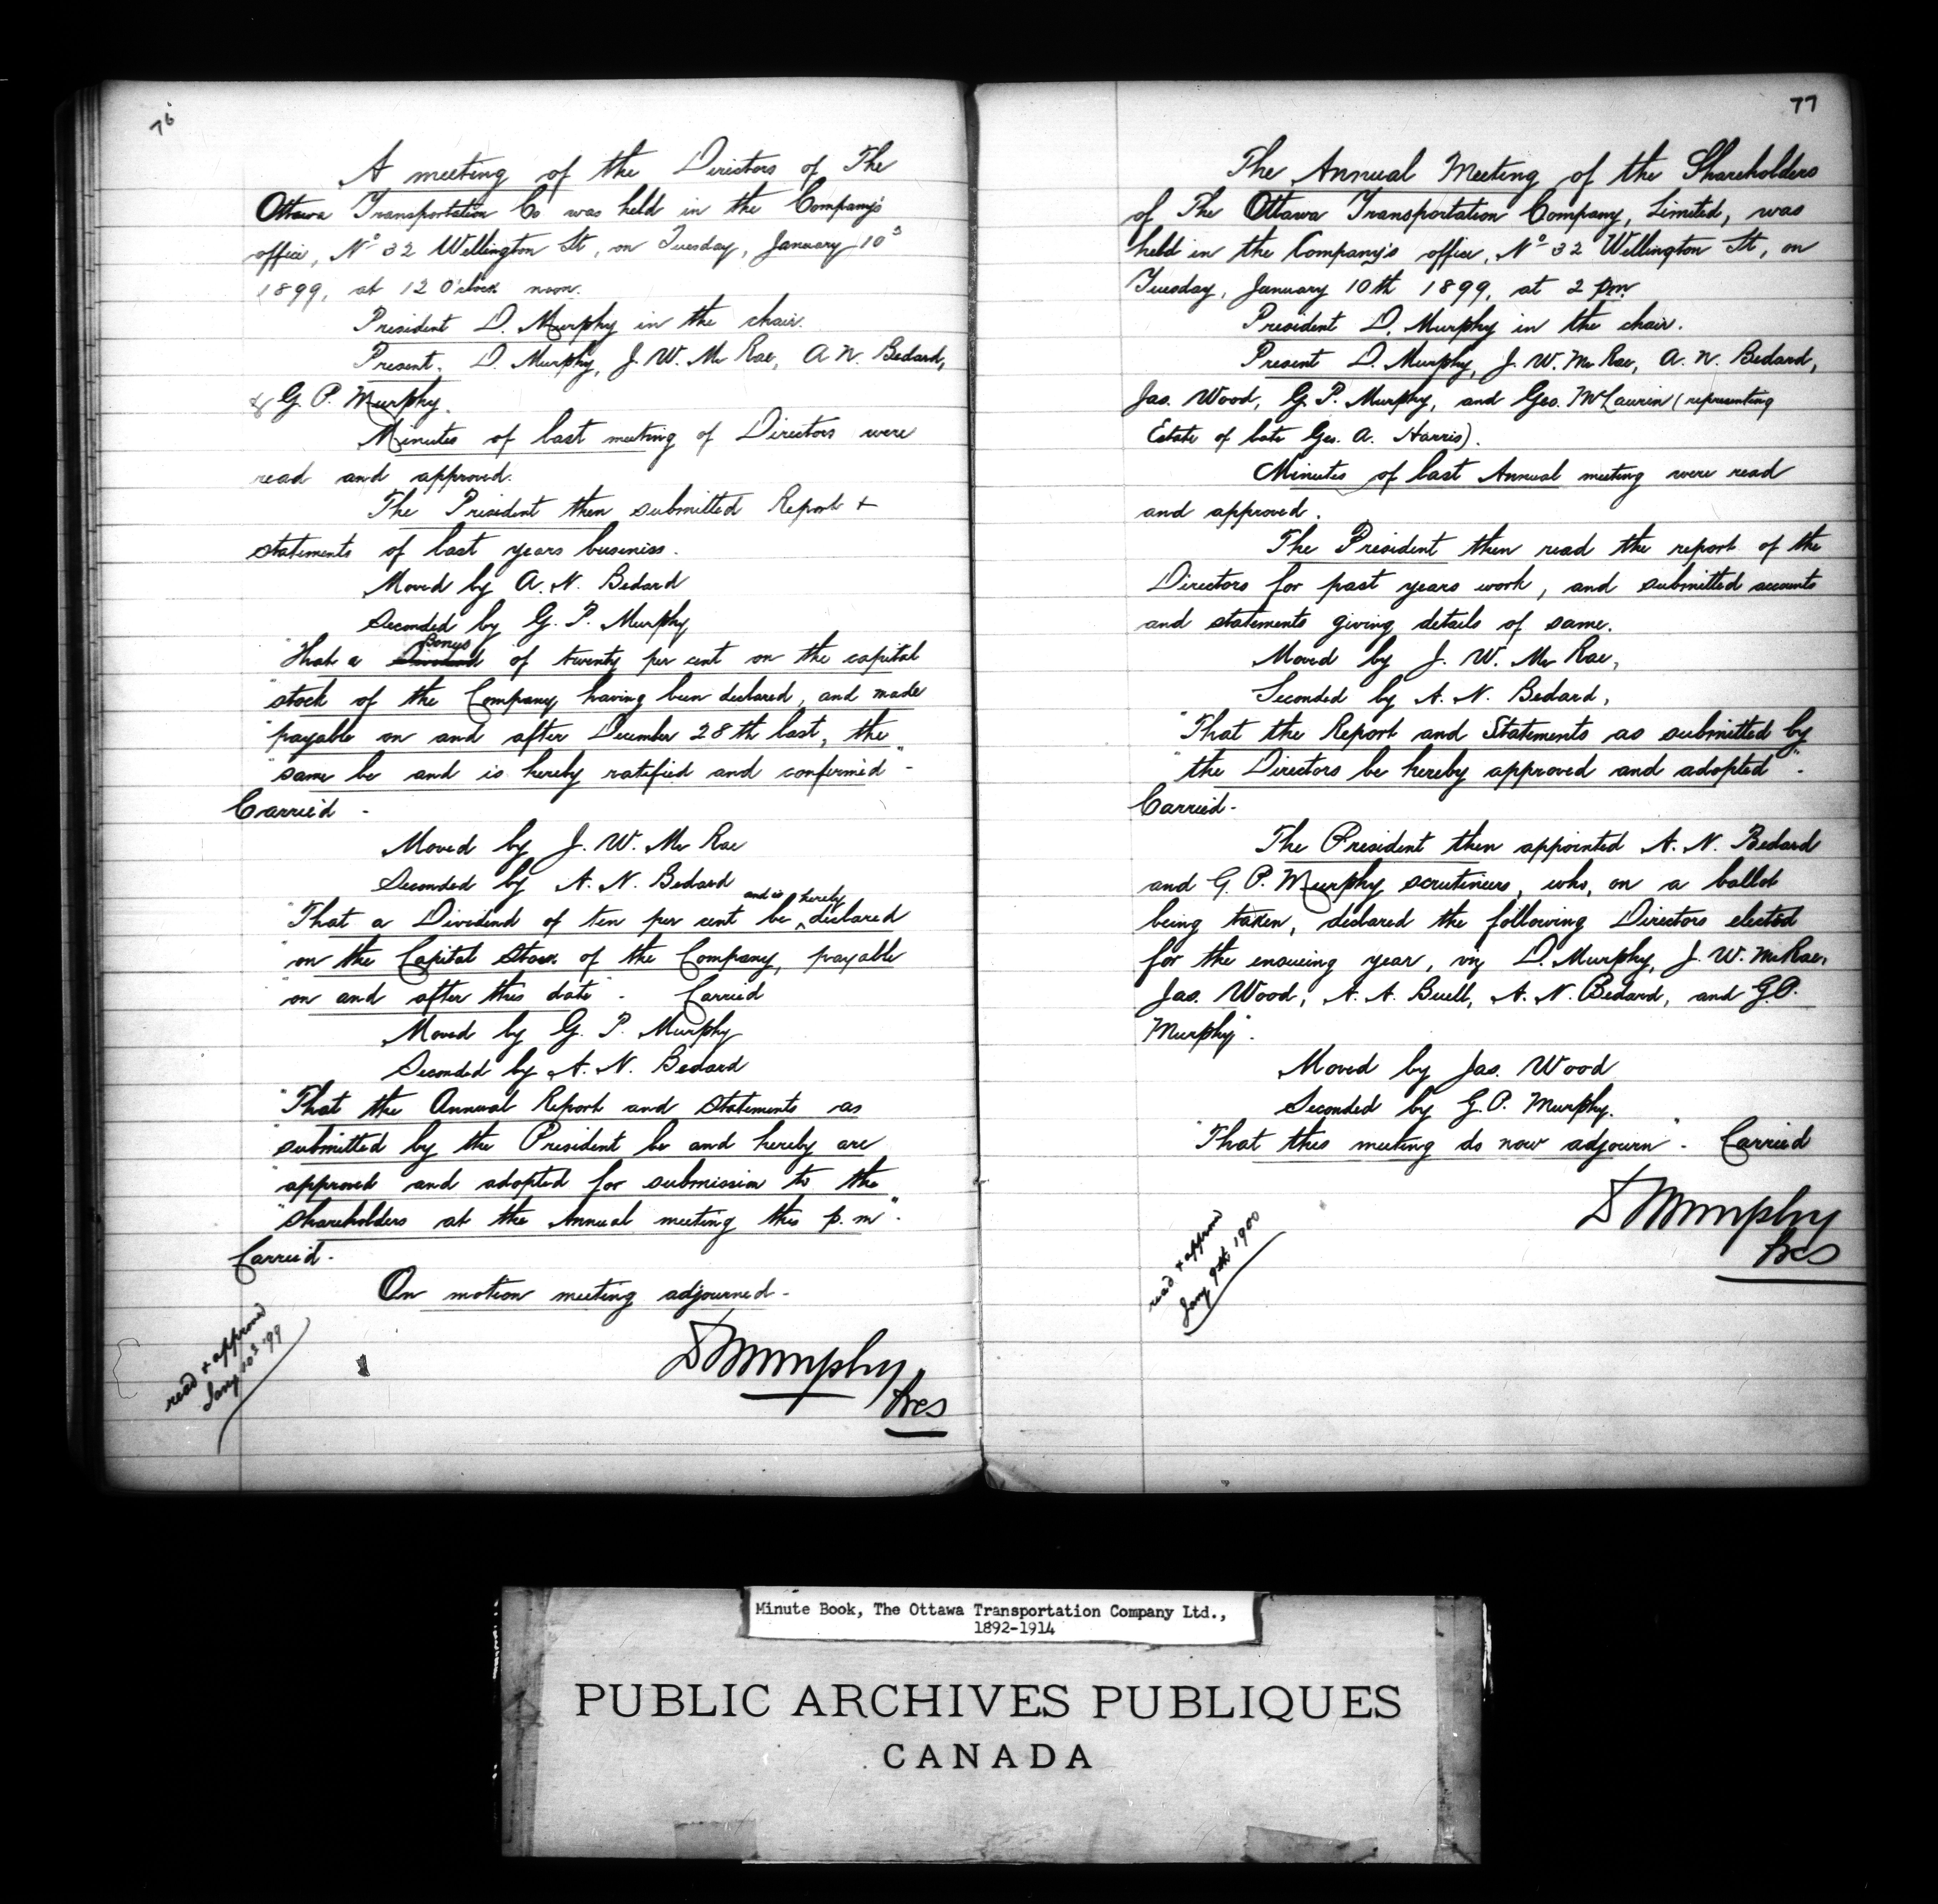 76
A meeting of the Directors of The
Ottawa Transportation Co was held in the Company's
office, No 32 Wellington St, on Tuesday, January 10th
1899, at 12 O'clock noon.
President D. Murphy in the chair.
Present. D. Murphy, J. W. McRae, A N. Bedard,
& G. P. Murphy.
Minutes of last meeting of Directors were
read and approved.
The President then submitted Report +
statements of last years business.
Moved by A. N. Bedard
Seconded by G. P. Murphy
Bonus
"That a Dividend of twenty per cent on the capital
"stock of the Company having been declared, and made
"payable on and after December 28th last, the
"same be and is hereby ratified and confirmed" -
Carried -
Moved by J. W. Mc Rae
Seconded by A. N. Bedard
and is hereby
"That a Dividend of ten per cent be ^ declared
"on the Capital Stock of the Company, payable
"on and after this date" - Carried
Moved by G. P. Murphy
Seconded by A. N. Bedard
"That the Annual Report and Statements as
"submitted by the President be and hereby are
"approved and adopted for submission to the
"Shareholders at the Annual meeting this p.m".
Carried -
On motion meeting adjourned -
read + approved
Jany 10th '99
D Murphy
Pres
77
The Annual Meeting of the Shareholders
of The Ottawa Transportation Company, Limited, was
held in the Company's office, No 32 Wellington St, on
Tuesday, January 10th 1899, at 2 pm.
President D. Murphy in the chair.
Present D. Murphy, J. W. McRae, A. N. Bedard,
Jas. Wood, G. P. Murphy, and Geo. McLaurin (representing
Estate of late Geo. A. Harris).
Minutes of last Annual meeting were read
and approved.
The President then read the report of the
Directors for past years work, and submitted accounts
and statements giving details of same.
Moved by J. W. Mc Rae,
Seconded by A. N. Bedard,
"That the Report and Statements as submitted by
"the Directors be hereby approved and adopted" -
Carried -
The President then appointed A. N. Bedard
and G. P. Murphy scrutineers, who, on a ballot
being taken, declared the following Directors elected
for the ensuing year, viz D. Murphy, J. W. McRae,
Jas. Wood, A. A. Buell, A. N. Bedard, and G.P.
Murphy".
Moved by Jas. Wood
Seconded by G. P. Murphy.
"That this meeting do now adjourn" - Carried
D Murphy
Pres
read + approved
Jany 9th 1900
Minute Book, The Ottawa Transportation Company Ltd.,
1892-1914
PUBLIC ARCHIVES PUBLIQUES
CANADA